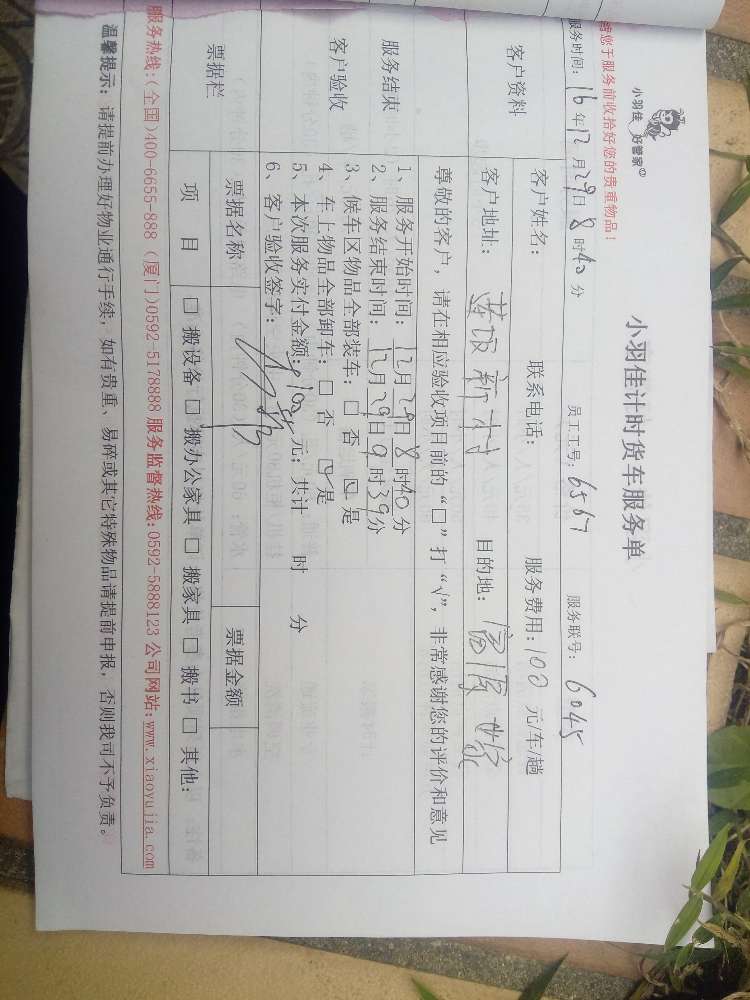 小羽佳 好管家
小羽佳计时货车服务单
请您于服务前收拾好您的贵重物品！
服务时间：16年12月29日8时40分 员工工号：6567 服务联号：6045
客户资料 客户姓名： 联系电话： 服务费用：100元/车/趟
客户地址： 新村 目的地：
尊敬的客户，请在相应验收项目前的“□”打“√”，非常感谢您的评价和意见
服务结束
客户验收
1、服务开始时间：12月29日8时40分
2、服务结束时间：12月29日9时39分
3、候车区物品全部装车：□ 否 ☑ 是
4、车上物品全部卸车：□ 否 ☑ 是
5、本次服务实付金额：100元；共计 时 分
6、客户验收签字：
票据栏 票据名称 票据金额
项 目 □ 搬设备 □ 搬办公家具 □ 搬家具 □ 搬书 □ 其他：
服务热线：(全国)400-6655-888 (厦门)0592-5178888 服务监督热线：0592-5888123 公司网站：www.xiaoyujia.com
温馨提示：请提前办理好物业通行手续，如有贵重、易碎或其它特殊物品请提前申报，否则我司不予负责。